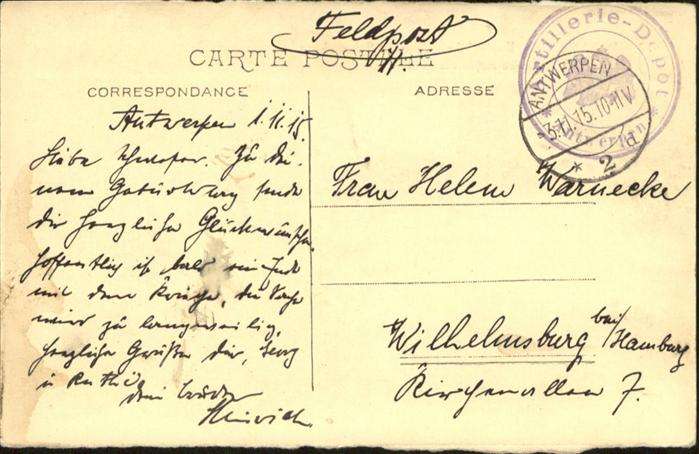 Feldpost
CARTE POSTALE
CORRESPONDANCE
ADRESSE
Artillerie-Depot
Antwerpen
ANTWERPEN
3.11.15.10-11V
* 2a
Antwerpen 1.11.15.
Liebe Schwester. Zu dei-
nem Geburtstag sende
dir herzliche Glückwünsche.
Hoffentlich ist bald ein Ende
mit dem Kriege, die Sache
wird zu langweilig.
Herzliche Grüße dir, Georg
u Ruthi
dein Bruder
Hinrich
Frau Helene Warnecke
Wilhelmsburg bei/Hamburg
Kirchenallee 7.